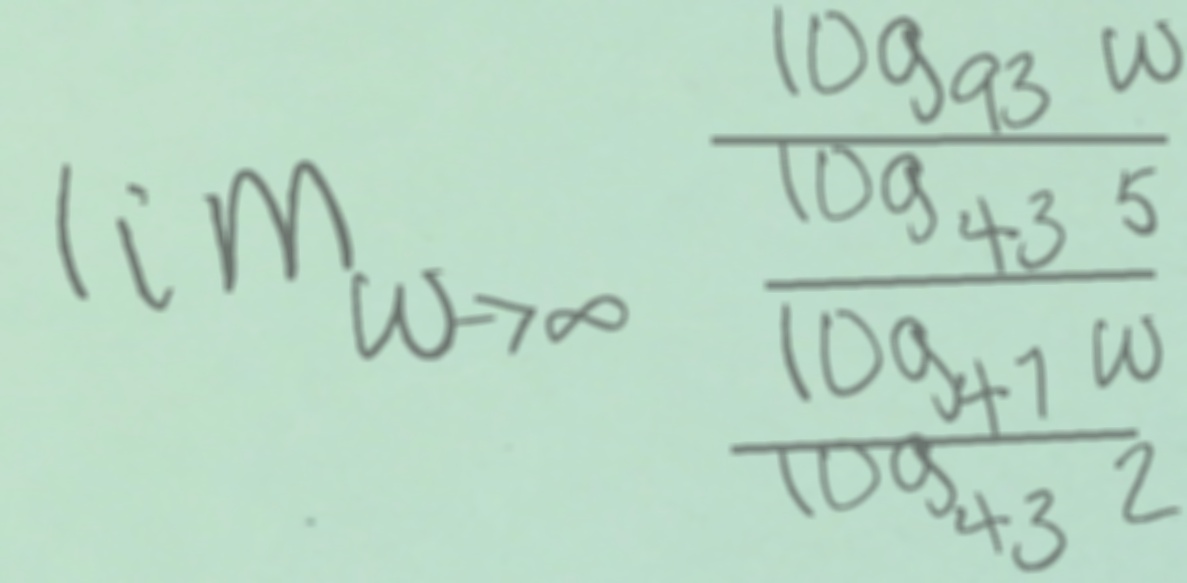 lim w→∞
log₉₃ w
log₄₃ 5
log₄₁ w
log₄₃ 2